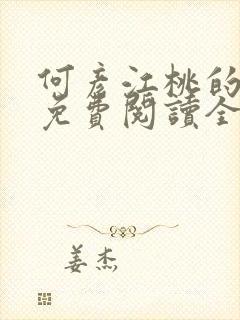 何彥江桃的
免費閱讀全
姜杰